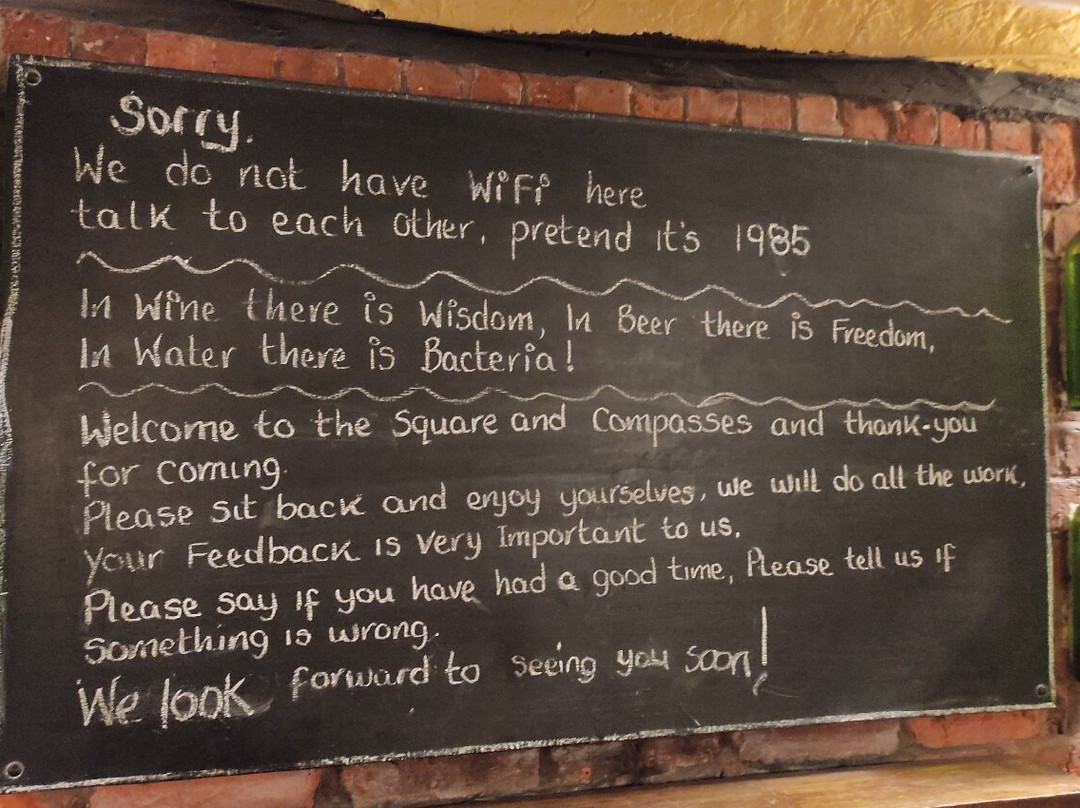 Sorry.
We do not have WiFi here
talk to each other, pretend it's 1985
In Wine there is Wisdom, In Beer there is Freedom,
In Water there is Bacteria!
Welcome to the Square and Compasses and thank-you
for coming.
Please sit back and enjoy yourselves, we will do all the work,
your Feedback is very Important to us.
Please say if you have had a good time, Please tell us if
something is wrong.
We look forward to seeing you soon!